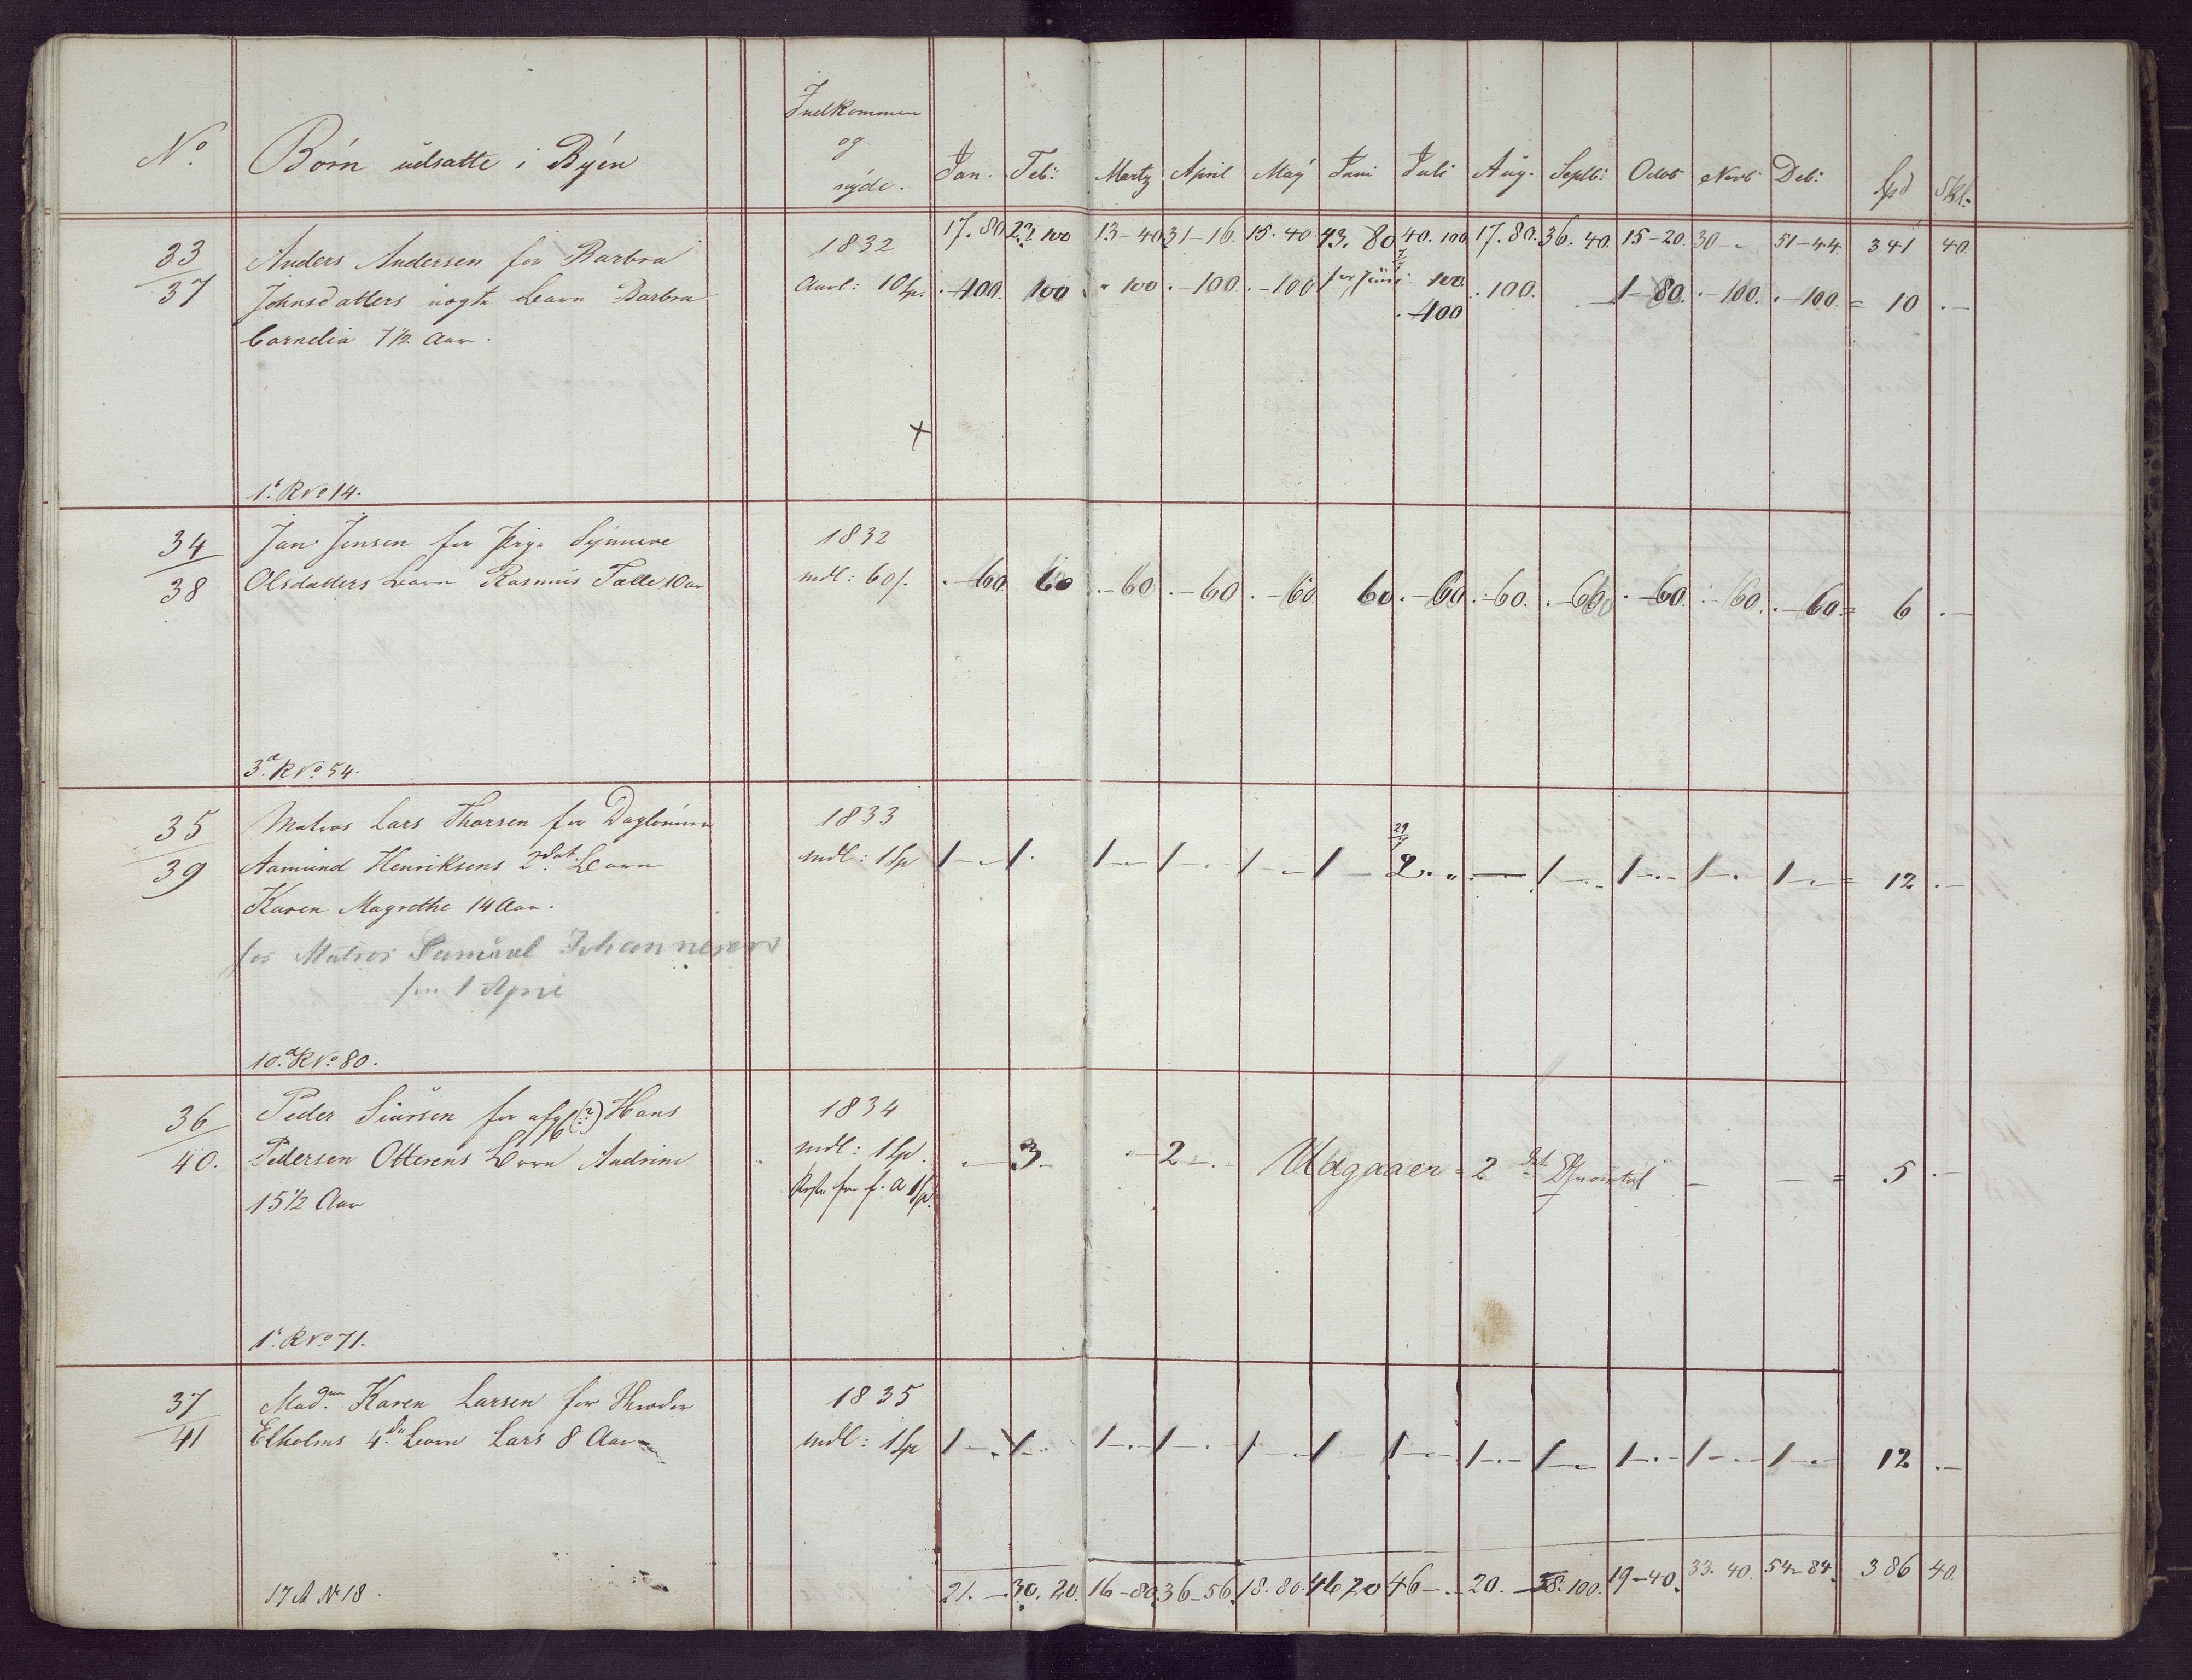 No. Børn udsatte i Byen Indkommen
og
nyde. Jan. Feb: Martz April May Juni Juli Aug. Septb: Octob Novb Deb: Spd Skl.
17.80 23 100 13-40 31-16. 15.40 43.80 40.100 17.80. 36.40. 15-20. 30-- 51-44. 341 40.
33 Anders Andersen for Barbra 1832
37 Johnsdatters uægte Barn Barbra Aarl: 10 Sp. .-100. 100 "100 .-100. .-100 for Juni 100 .100. 1-80. .-100. .-100. = 10 .-
.100
Cornelia 7 1/2 Aar.
+
1' R No 14.
34 Jan Jensen for Pige Synneve 1832
38 Olsdatters Barn Rasmus Tolle 10 aar mdl: 60 s. .-60 60 .-60 .-60. .-60 60 .-60 .-60. .-60 .-60. .-60. .-60 = 6 .-
3d R No 54.
35 Matros Lars Thorsen for Dagleiner 1833
29
39 Aamund Henriksens 2det Barn mdl: 1 Sp 1-. 1. 1-. 1-. 1-. 1- 2.. - 1-. 1-. 1-. 1-. = 12 .-
Karen Magrethe 14 Aar.
for Matros Samuel Johannesen
fra 1 April
10d R No 80.
36 Peder Siursen for afg (?) Hans 1834
40. Pedersen Otterens Barn Andrine mdl: 1 Sp. .-3- -2-. Udgaaer 2det Qvartal - - = 5 .-
15 1/2 Aar
1' R No 71.
37 Madm Karen Larsen for Theodor 1835
41 Elholms 4de Barn Lars 8 Aar mdl: 1 Sp 1-. 1-. 1-. 1-. 1- 1 1-. 1-. 1-. 1-. 1-. 1-. 12 .-
17 A No 18. 21.- 30.20. 16-80. 36-56. 18.80. 46 20 46-. 20.- 38.100. 19-40. 33.40. 54-84. 386 40.